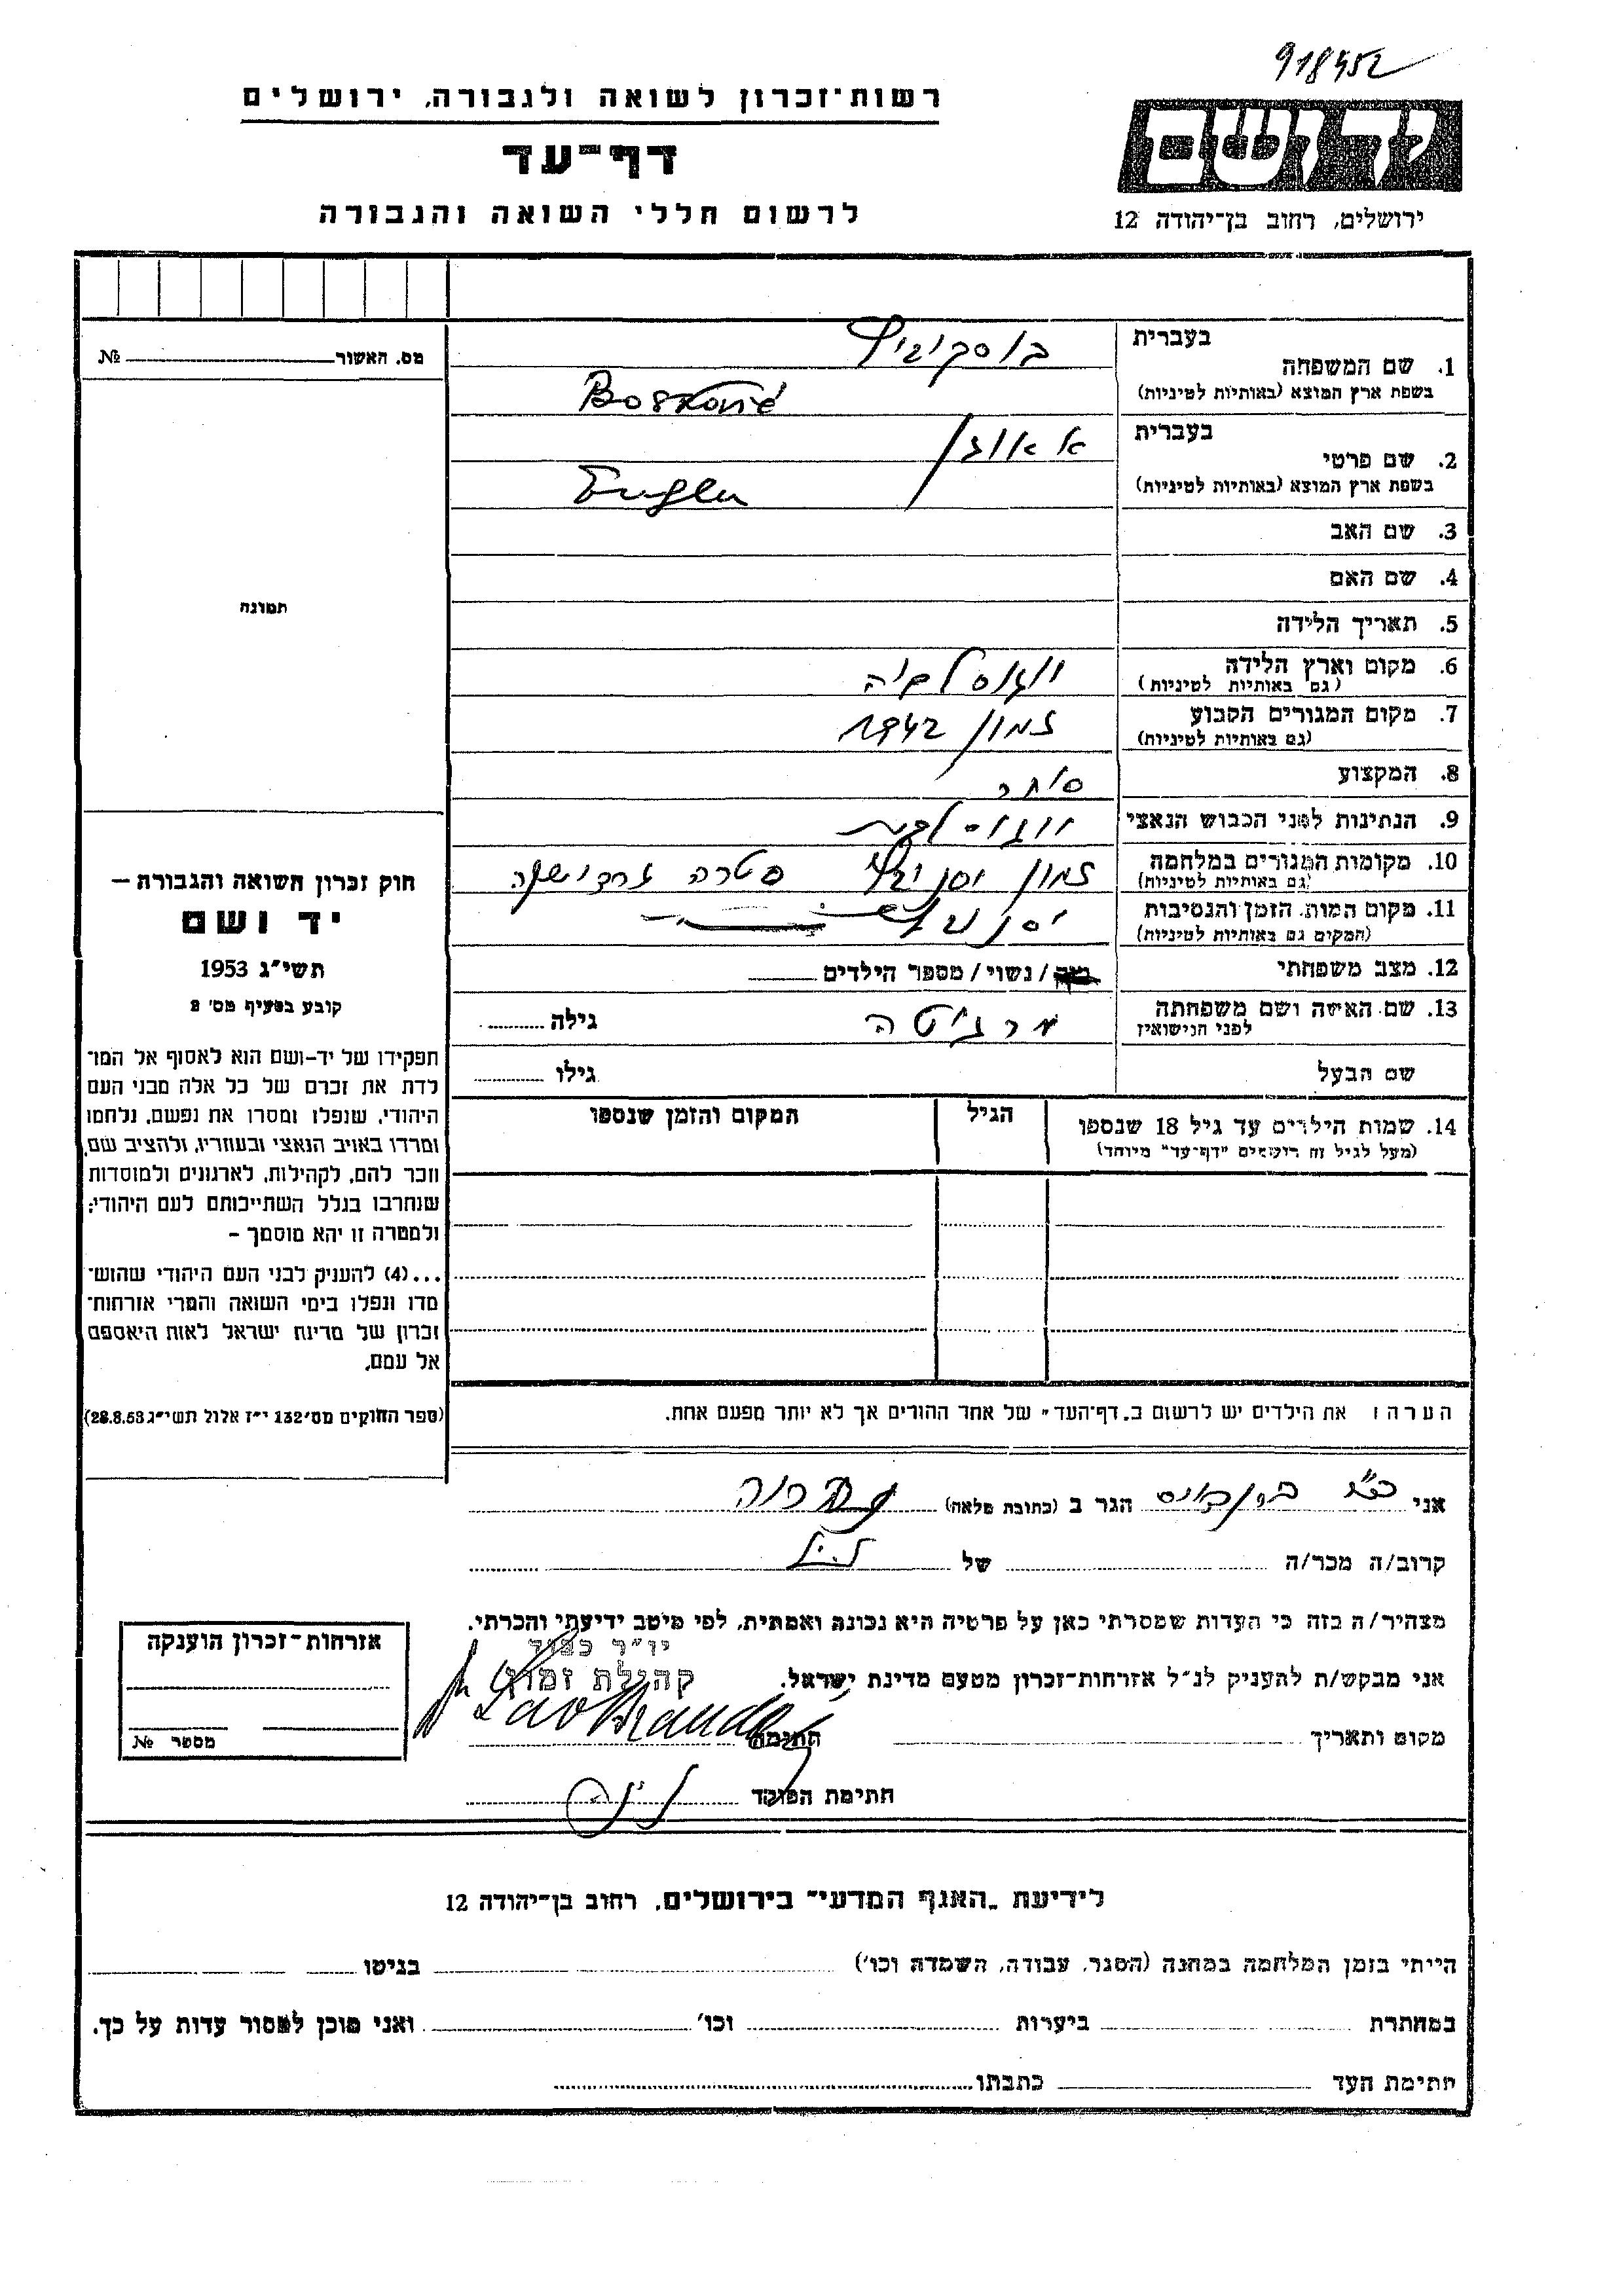 918452
רשות־זכרון לשואה ולגבורה, ירושלים
דף־עד
לרשום חללי השואה והגבורה
יד ושם
ירושלים, רחוב בן־יהודה 12
מס. האשור № 
תמונה
חוק זכרון השואה והגבורה —
יד ושם
תשי״ג 1953
קובע בסעיף מס׳ 2
תפקידו של יד–ושם הוא לאסוף אל המו־
לדת את זכרם של כל אלה מבני העם
היהודי, שנפלו ומסרו את נפשם, נלחמו
ומרדו באויב הנאצי ובעוזריו, ולהציב שם,
וזכר להם, לקהילות, לארגונים ולמוסדות
שנחרבו בגלל השתייכותם לעם היהודי;
ולמטרה זו יהא מוסמך –
...(4) להעניק לבני העם היהודי שהוש־
מדו ונפלו בימי השואה והמרי אזרחות־
זכרון של מדינת ישראל לאות היאספם
אל עמם.
(ספר החוקים מס׳ 132 י״ז אלול תשי״ג 28.8.53)
בעברית בוסקוביץ
1. שם המשפחה
בשפת ארץ המוצא (באותיות לטיניות)
בעברית
2. שם פרטי
בשפת ארץ המוצא (באותיות לטיניות) Eugen
3. שם האב
4. שם האם
5. תאריך הלידה
6. מקום וארץ הלידה יוגוסלביה
(גם באותיות לטיניות)
7. מקום המגורים הקבוע זמון 1942
(גם באותיות לטיניות)
8. המקצוע סוחר
9. הנתינות לפני הכבוש הנאצי
10. מקומות המגורים במלחמה זמון יסנובץ סטרה גרדישקה
(גם באותיות לטיניות)
11. מקום המות, הזמן והנסיבות יסנובץ
(המקום גם באותיות לטיניות)
12. מצב משפחתי / נשוי / מספר הילדים
13. שם האישה ושם משפחתה מרגיטה גילה
לפני הנישואין
שם הבעל גילו
14. שמות הילדים עד גיל 18 שנספו הגיל המקום והזמן שנספו
(מעל לגיל זה רושמים ״דף־עד״ מיוחד)
הערה: את הילדים יש לרשום ב„דף־העד״ של אחד ההורים אך לא יותר מפעם אחת.
אני הגר ב (כתובת מלאה)
קרוב/ה מכר/ה של
מצהיר/ה בזה כי העדות שמסרתי כאן על פרטיה היא נכונה ואמתית, לפי מיטב ידיעתי והכרתי.
יו״ר כבוד
קהילת זמון
אני מבקש/ת להעניק לנ״ל אזרחות־זכרון מטעם מדינת ישראל.
מקום ותאריך החתימה
חתימת הפוקד
אזרחות־זכרון הוענקה
מספר №
לידיעת „האגף המדעי״ בירושלים, רחוב בן־יהודה 12
הייתי בזמן המלחמה במחנה (הסגר, עבודה, השמדה וכו׳) בגיטו
במחתרת ביערות וכו׳ ואני מוכן למסור עדות על כך.
חתימת העד כתבתו